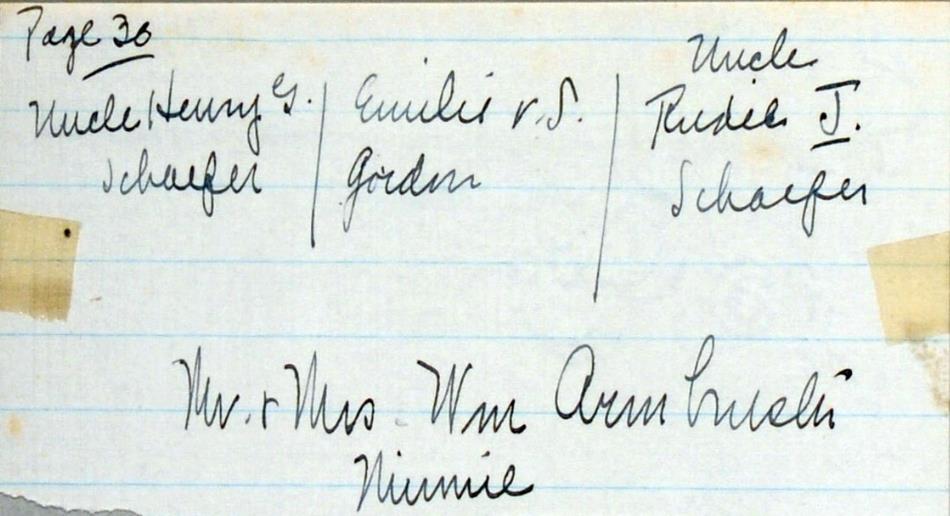 Page 30
Uncle Henry G. Schaefer
Emilie v. S. Gordon
Uncle Rudie J. Schaefer
Mr. + Mrs. Wm
Minnie